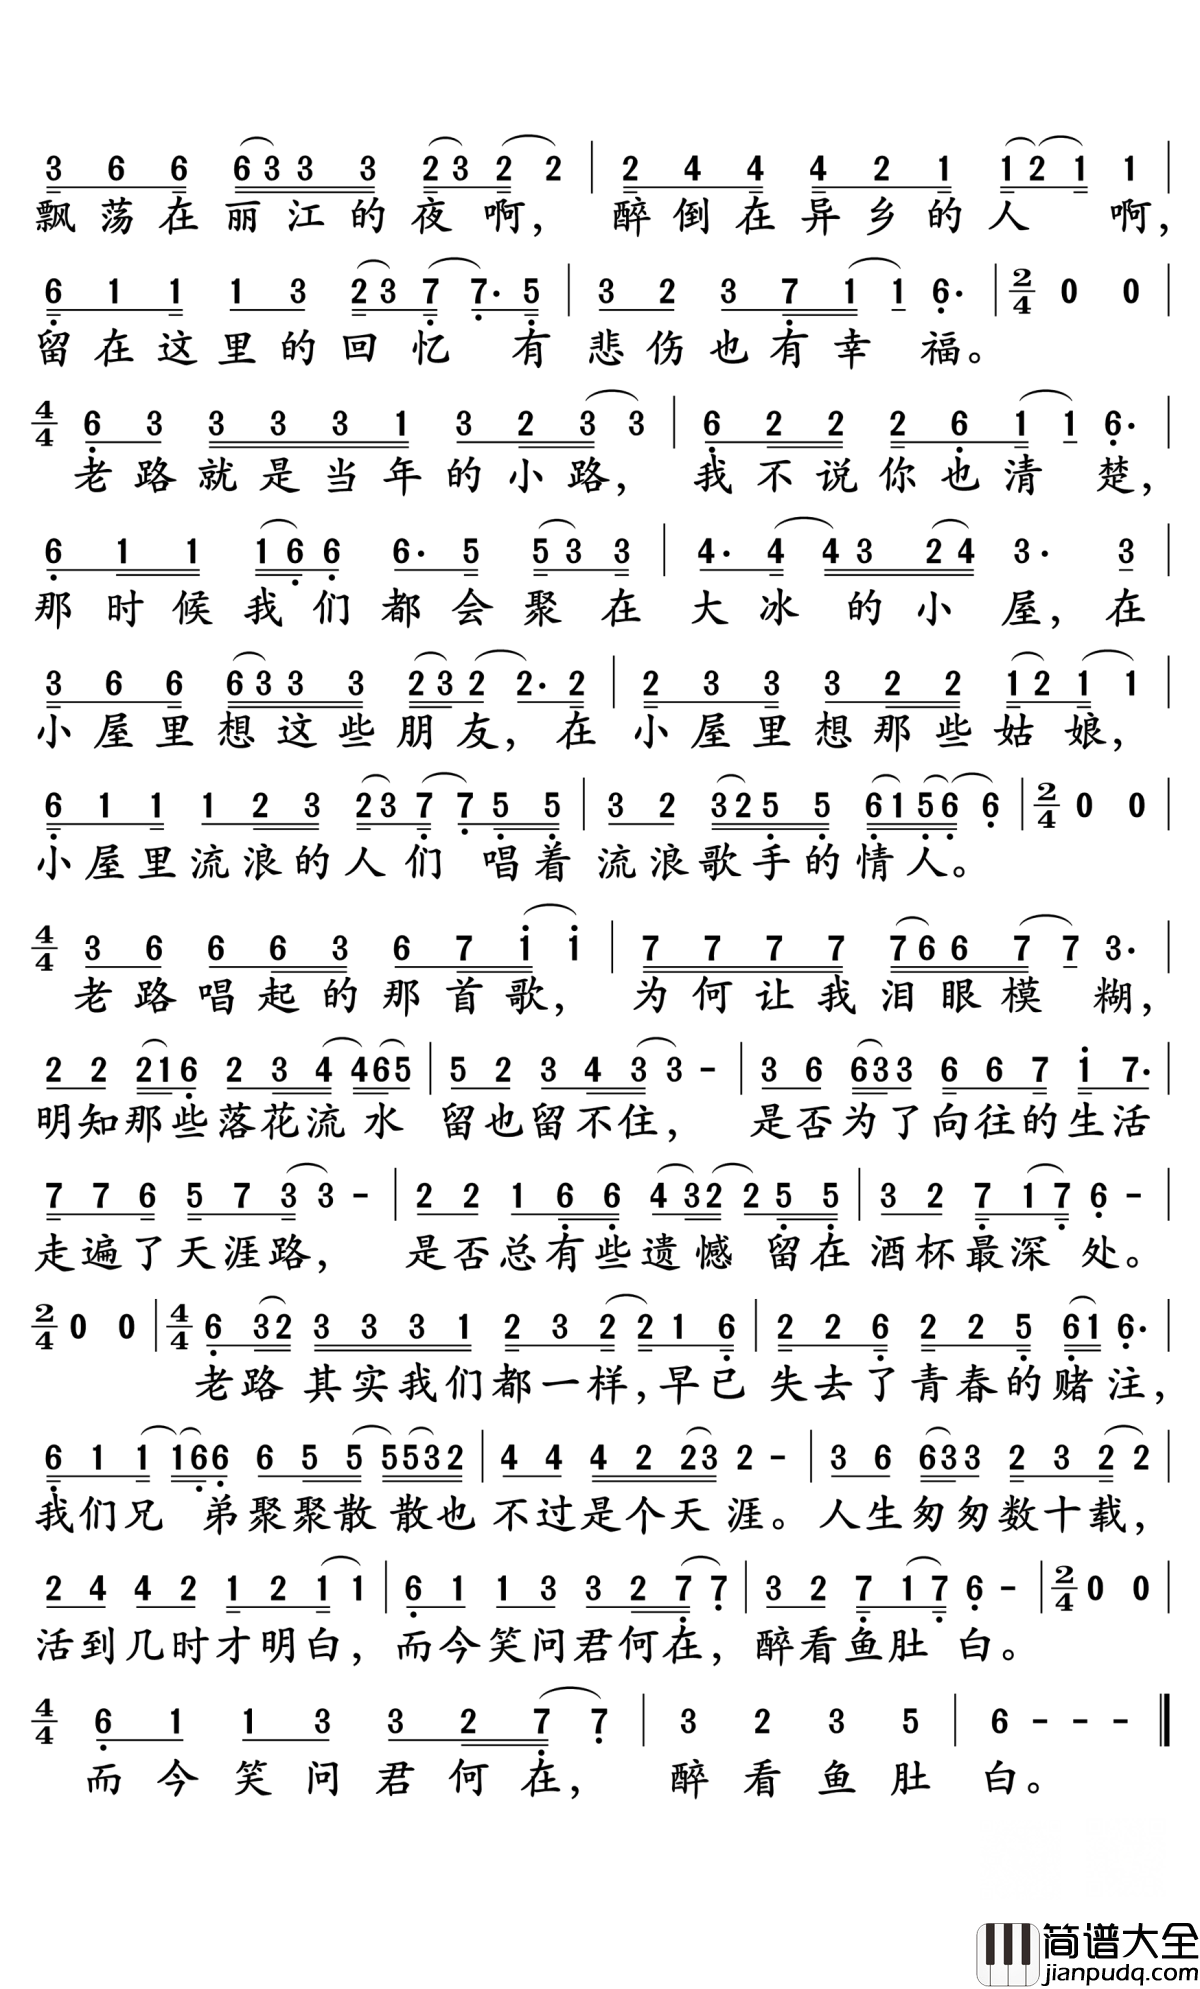 3 6 6 6 3 3 3 2 3 2 2 | 2 4 4 4 2 1 1 2 1 1 |
飘荡在丽江的夜啊，醉倒在异乡的人 啊，
6 1 1 1 3 2 3 7 7· 5 | 3 2 3 7 1 1 6· | 2/4 0 0 |
留在这里的回忆 有悲伤也有幸 福。
4/4 6 3 3 3 3 1 3 2 3 3 | 6 2 2 2 6 1 1 6· |
老路就是当年的小路，我不说你也清 楚，
6 1 1 1 6 6 6· 5 5 3 3 | 4· 4 4 3 2 4 3· 3 |
那时候我们都会聚在大冰 的小屋，在
3 6 6 6 3 3 3 2 3 2 2· 2 | 2 3 3 3 2 2 1 2 1 1 |
小屋里想这些朋友，在小屋里想那些姑娘，
6 1 1 1 2 3 2 3 7 7 5 5 | 3 2 3 2 5 5 6 1 5 6 6 | 2/4 0 0 |
小屋里流浪的人们 唱着流浪歌手的情人。
4/4 3 6 6 6 3 6 7 i i | 7 7 7 7 7 6 6 7 7 3· |
老路唱起的那首歌，为何让我泪眼模糊，
2 2 2 1 6 2 3 4 4 6 5 | 5 2 3 4 3 3 - | 3 6 6 3 3 6 6 7 i 7·
明知那些落花流水 留也留不住，是否为了向往的生活
7 7 6 5 7 3 3 - | 2 2 1 6 6 4 3 2 2 5 5 | 3 2 7 1 7 6 - |
走遍了天涯路，是否总有些遗憾 留在酒杯最深 处。
2/4 0 0 | 4/4 6 3 2 3 3 3 1 2 3 2 2 1 6 | 2 2 6 2 2 5 6 1 6· |
老路其实我们都一样，早已失去了青春的赌注，
6 1 1 1 6 6 6 5 5 5 5 3 2 | 4 4 4 2 2 3 2 - | 3 6 6 3 3 2 3 2 2 |
我们兄 弟聚聚散散也不过是个天涯。人生匆匆数十载，
2 4 4 2 1 2 1 1 | 6 1 1 3 3 2 7 7 | 3 2 7 1 7 6 - | 2/4 0 0 |
活到几时才明白，而今笑问君何在，醉看鱼肚 白。
4/4 6 1 1 3 3 2 7 7 | 3 2 3 5 | 6 - - - ‖
而今笑问君何在，醉看鱼肚白。
简谱大全
jianpudq.com